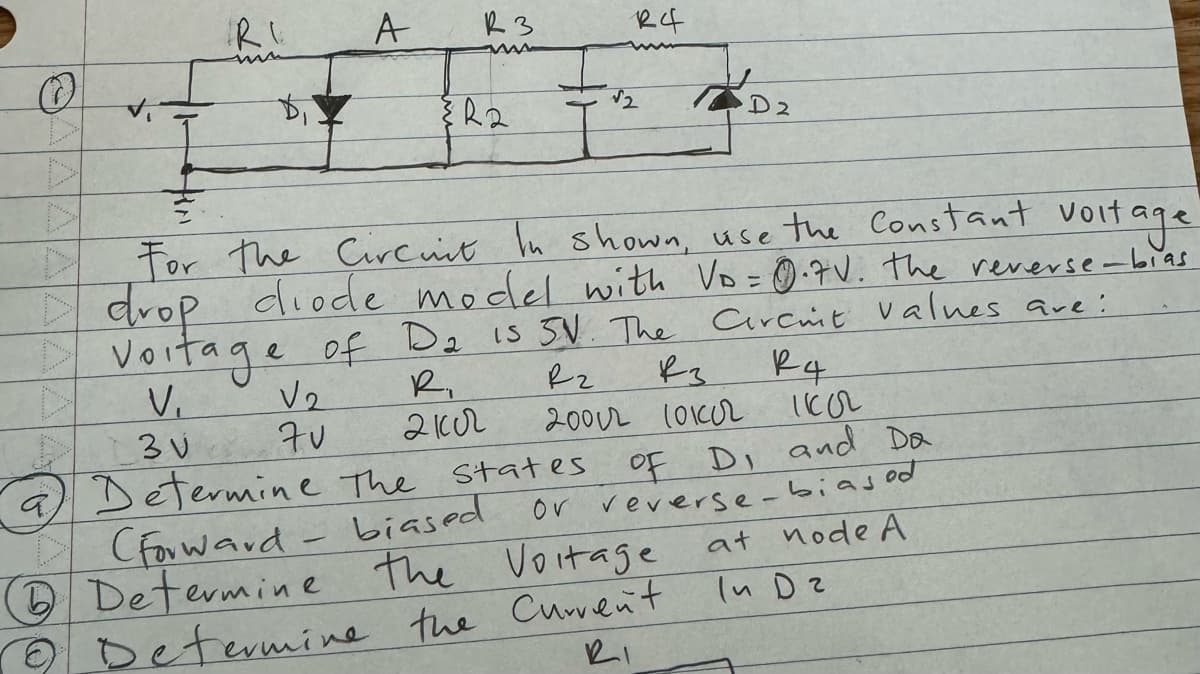 R1 A R3 R4
V1 D1 R2 V2 D2
For the Circuit In shown, use the Constant Voltage
drop diode model with VD = 0.7V. the reverse-bias
Voltage of D2 is 5V. The Circuit values are:
V1 V2 R1 R2 R3 R4
3V 7V 2KΩ 200Ω 10KΩ 1KΩ
a) Determine The states OF D1 and D2
(Forward - biased or reverse-biased
b Determine the Voltage at node A
c Determine the Current In D2
R1